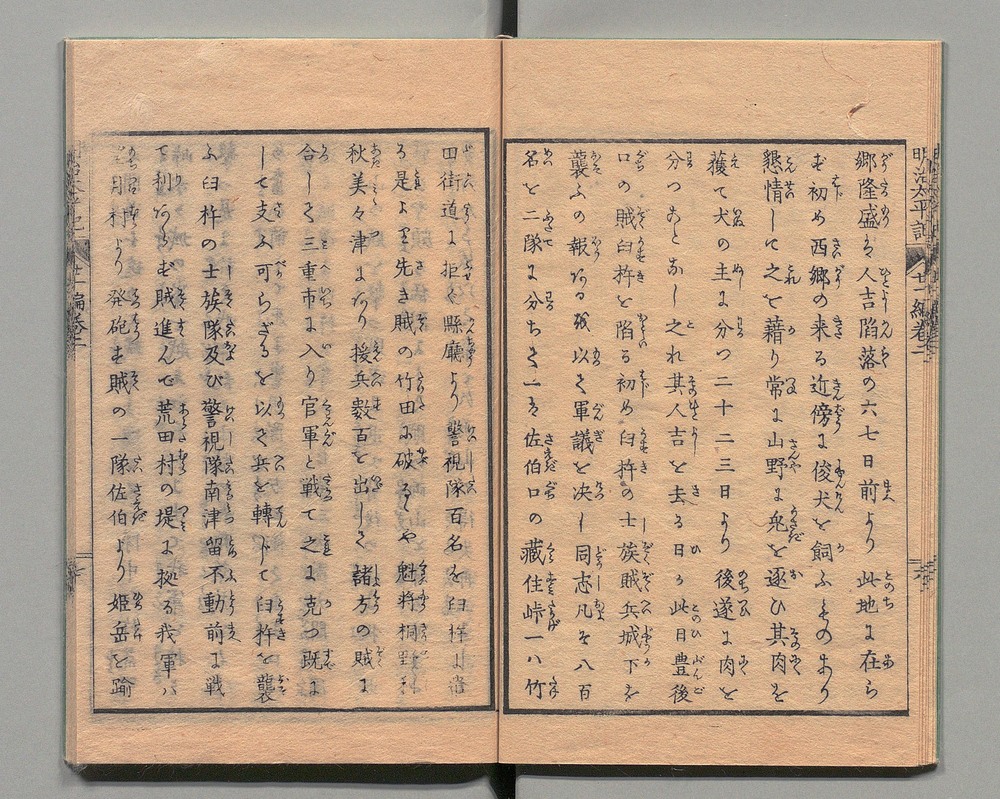 明治太平記 廿一編巻二
郷隆盛は人吉陥落の六七日前より此地に在ら
ず初め西郷の来る近傍に俊犬を飼ふものあり
懇情して之を藉り常に山野に兎を逐ひ其肉を
獲て犬の主に分つ二十二三日より後遂に肉を
分つことなし之れ其人吉を去る日か此日豊後
口の賊臼杵を陥る初め臼杵の士族賊兵城下を
襲ふの報あるを以て軍議を決し同志凡そ八百
名を二隊に分ち一は佐伯口の蔵住峠一ハ竹
田街道に拒ぐ県庁より警視隊百名を臼杵に
る是より先き賊の竹田に破るゝや魁将桐野利
秋美々津にあり援兵数百を出して諸方の賊に
合して三重市に入り官軍と戦て之に克つ既に
して支ふ可らざるを以て兵を転じて臼杵を襲
ふ臼杵の士族隊及び警視隊南津留不動前に戦
て利あらず賊進んで荒田村の堤に拠る我軍ハ
月村より発砲す賊の一隊佐伯より姫岳を踰
明治太平記 廿一編巻二